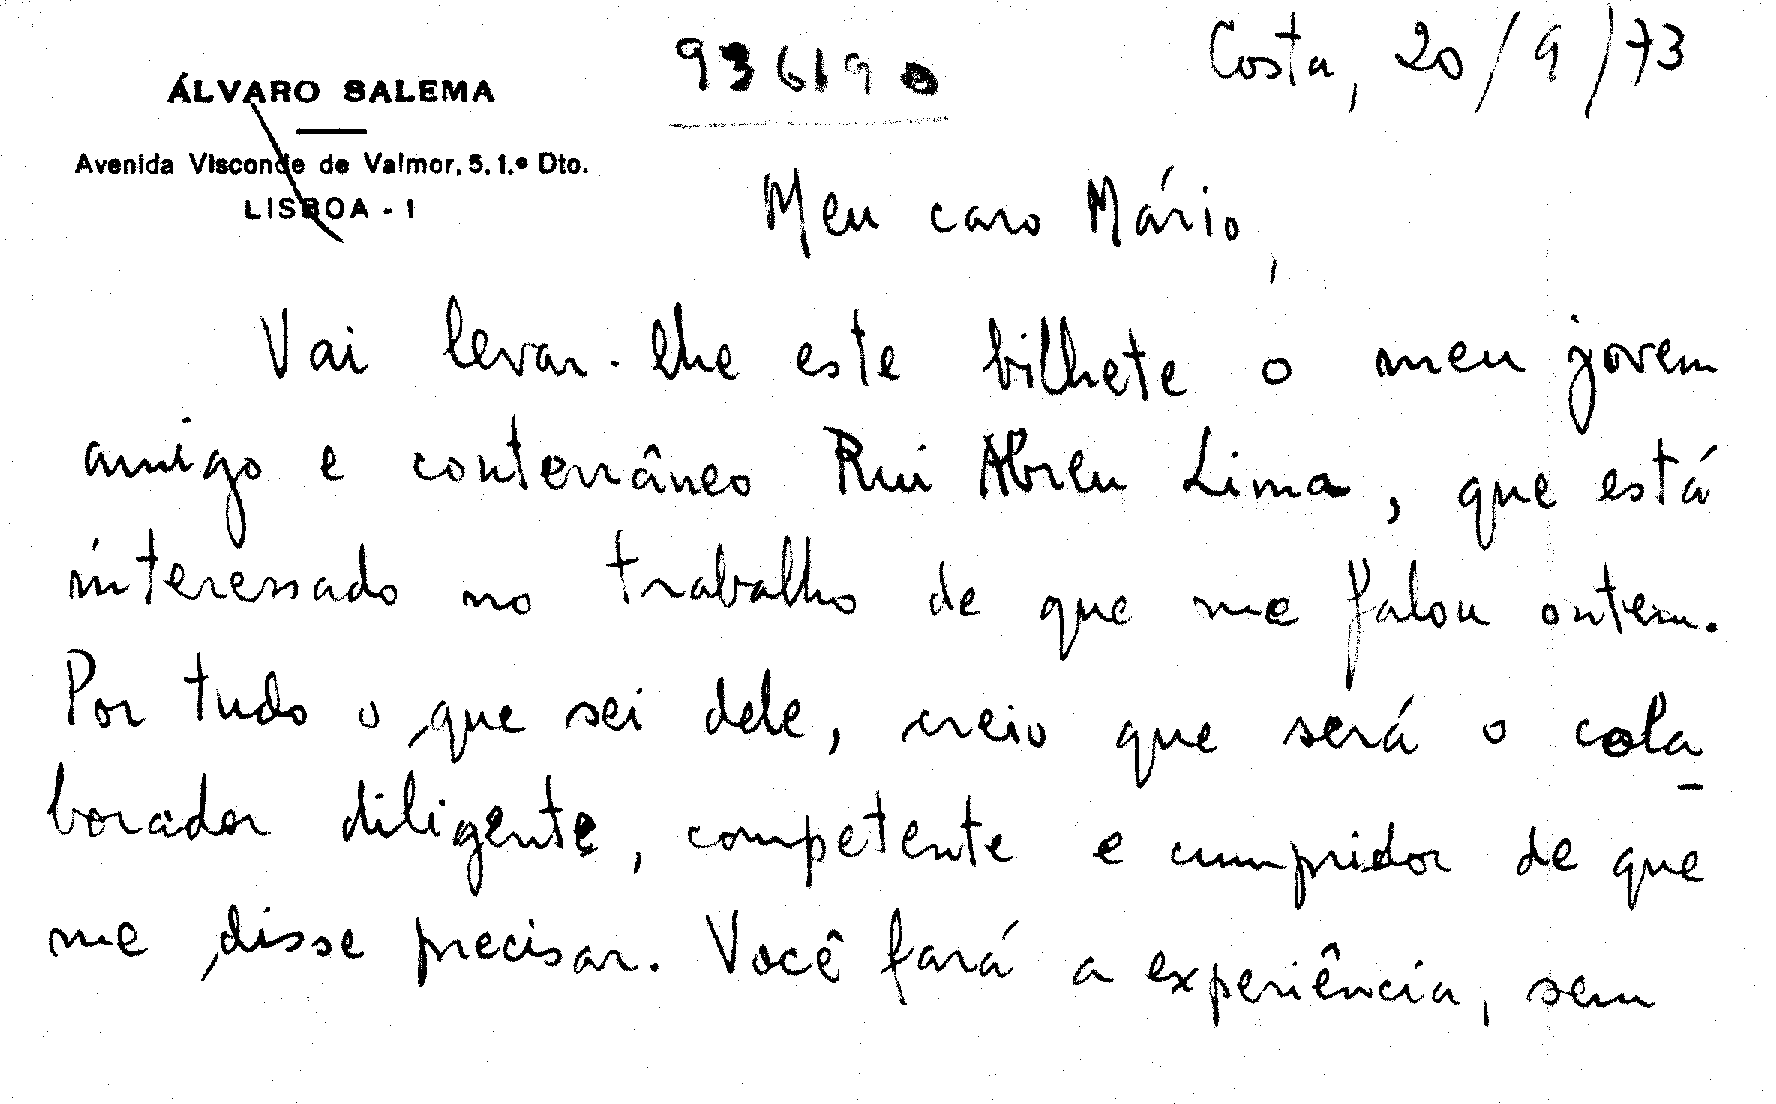 ÁLVARO SALEMA
Avenida Visconde de Valmor, 5, 1.º Dto.
LISBOA - 1
936190
Costa, 20/9/73
Meu caro Mário,
Vai levar-lhe este bilhete o meu jovem
amigo e conterrâneo Rui Abreu Lima, que está
interessado no trabalho de que me falou ontem.
Por tudo o que sei dele, creio que será o cola-
borador diligente, competente e cumpridor de que
me disse precisar. Você fará a experiência, sem